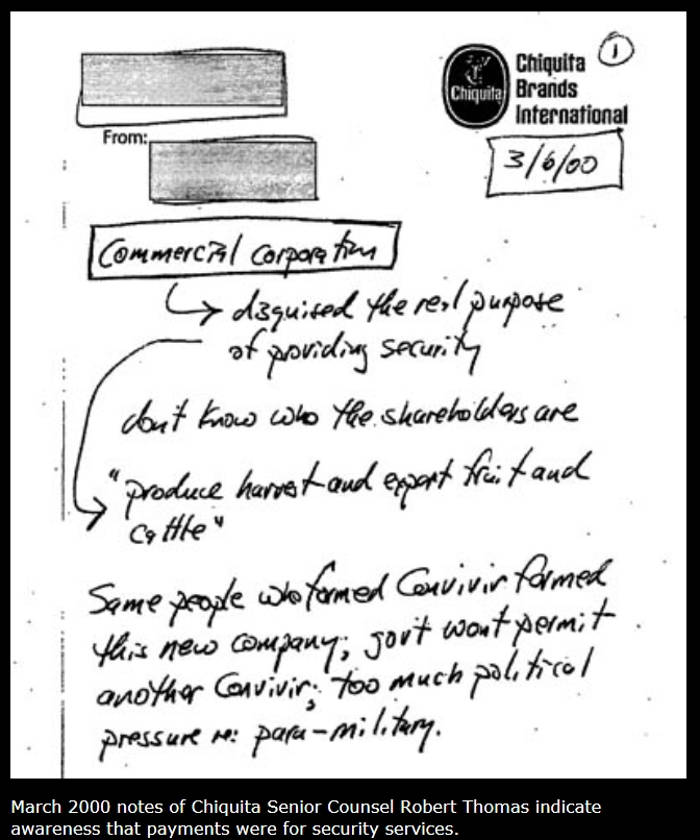 Chiquita
Brands
International
Chiquita
1
From:
3/6/00
Commercial Corporation
disguised the real purpose
of providing security
don't know who the shareholders are
"produce harvest and export fruit and
cattle"
Same people who formed Convivir formed
this new company; gov't won't permit
another Convivir; too much political
pressure re: para-military.
March 2000 notes of Chiquita Senior Counsel Robert Thomas indicate
awareness that payments were for security services.